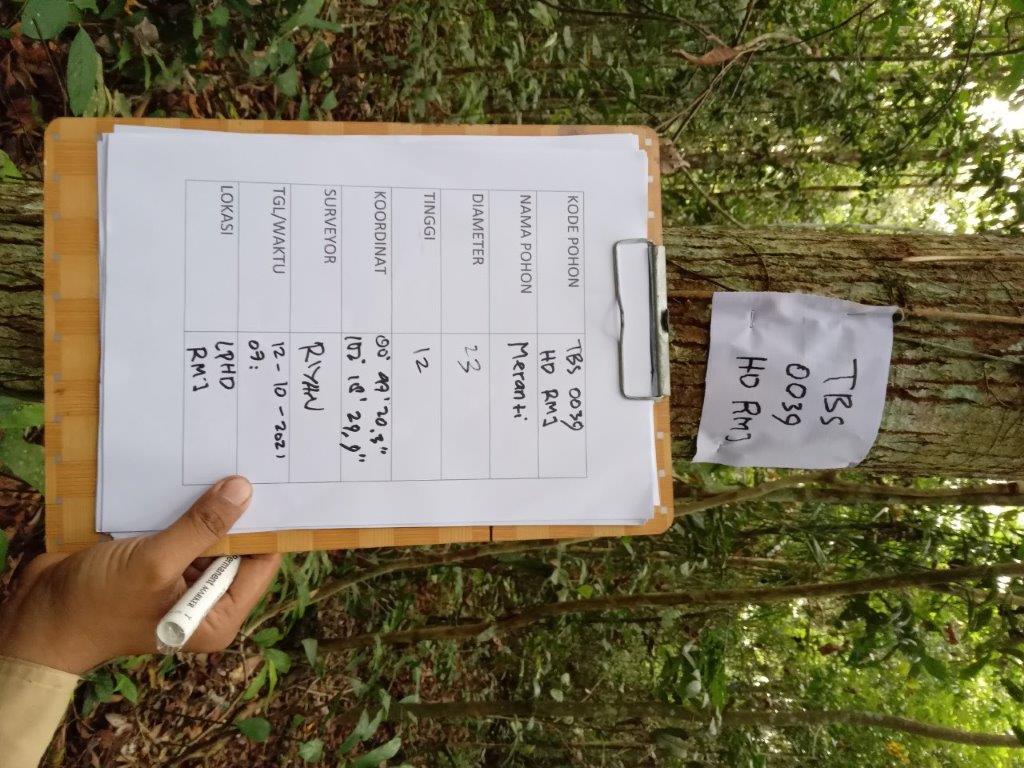 KODE POHON TBS 0039
HD RMJ
NAMA POHON Meranti
DIAMETER 23
TINGGI 12
KOORDINAT 00° 47' 20.3"
102° 18' 29,9"
SURVEYOR RIYAN
TGL/WAKTU 12-10-2021
07:
LOKASI LPHD
RMJ
TBS
0039
HD RMJ
Permanent MARKER